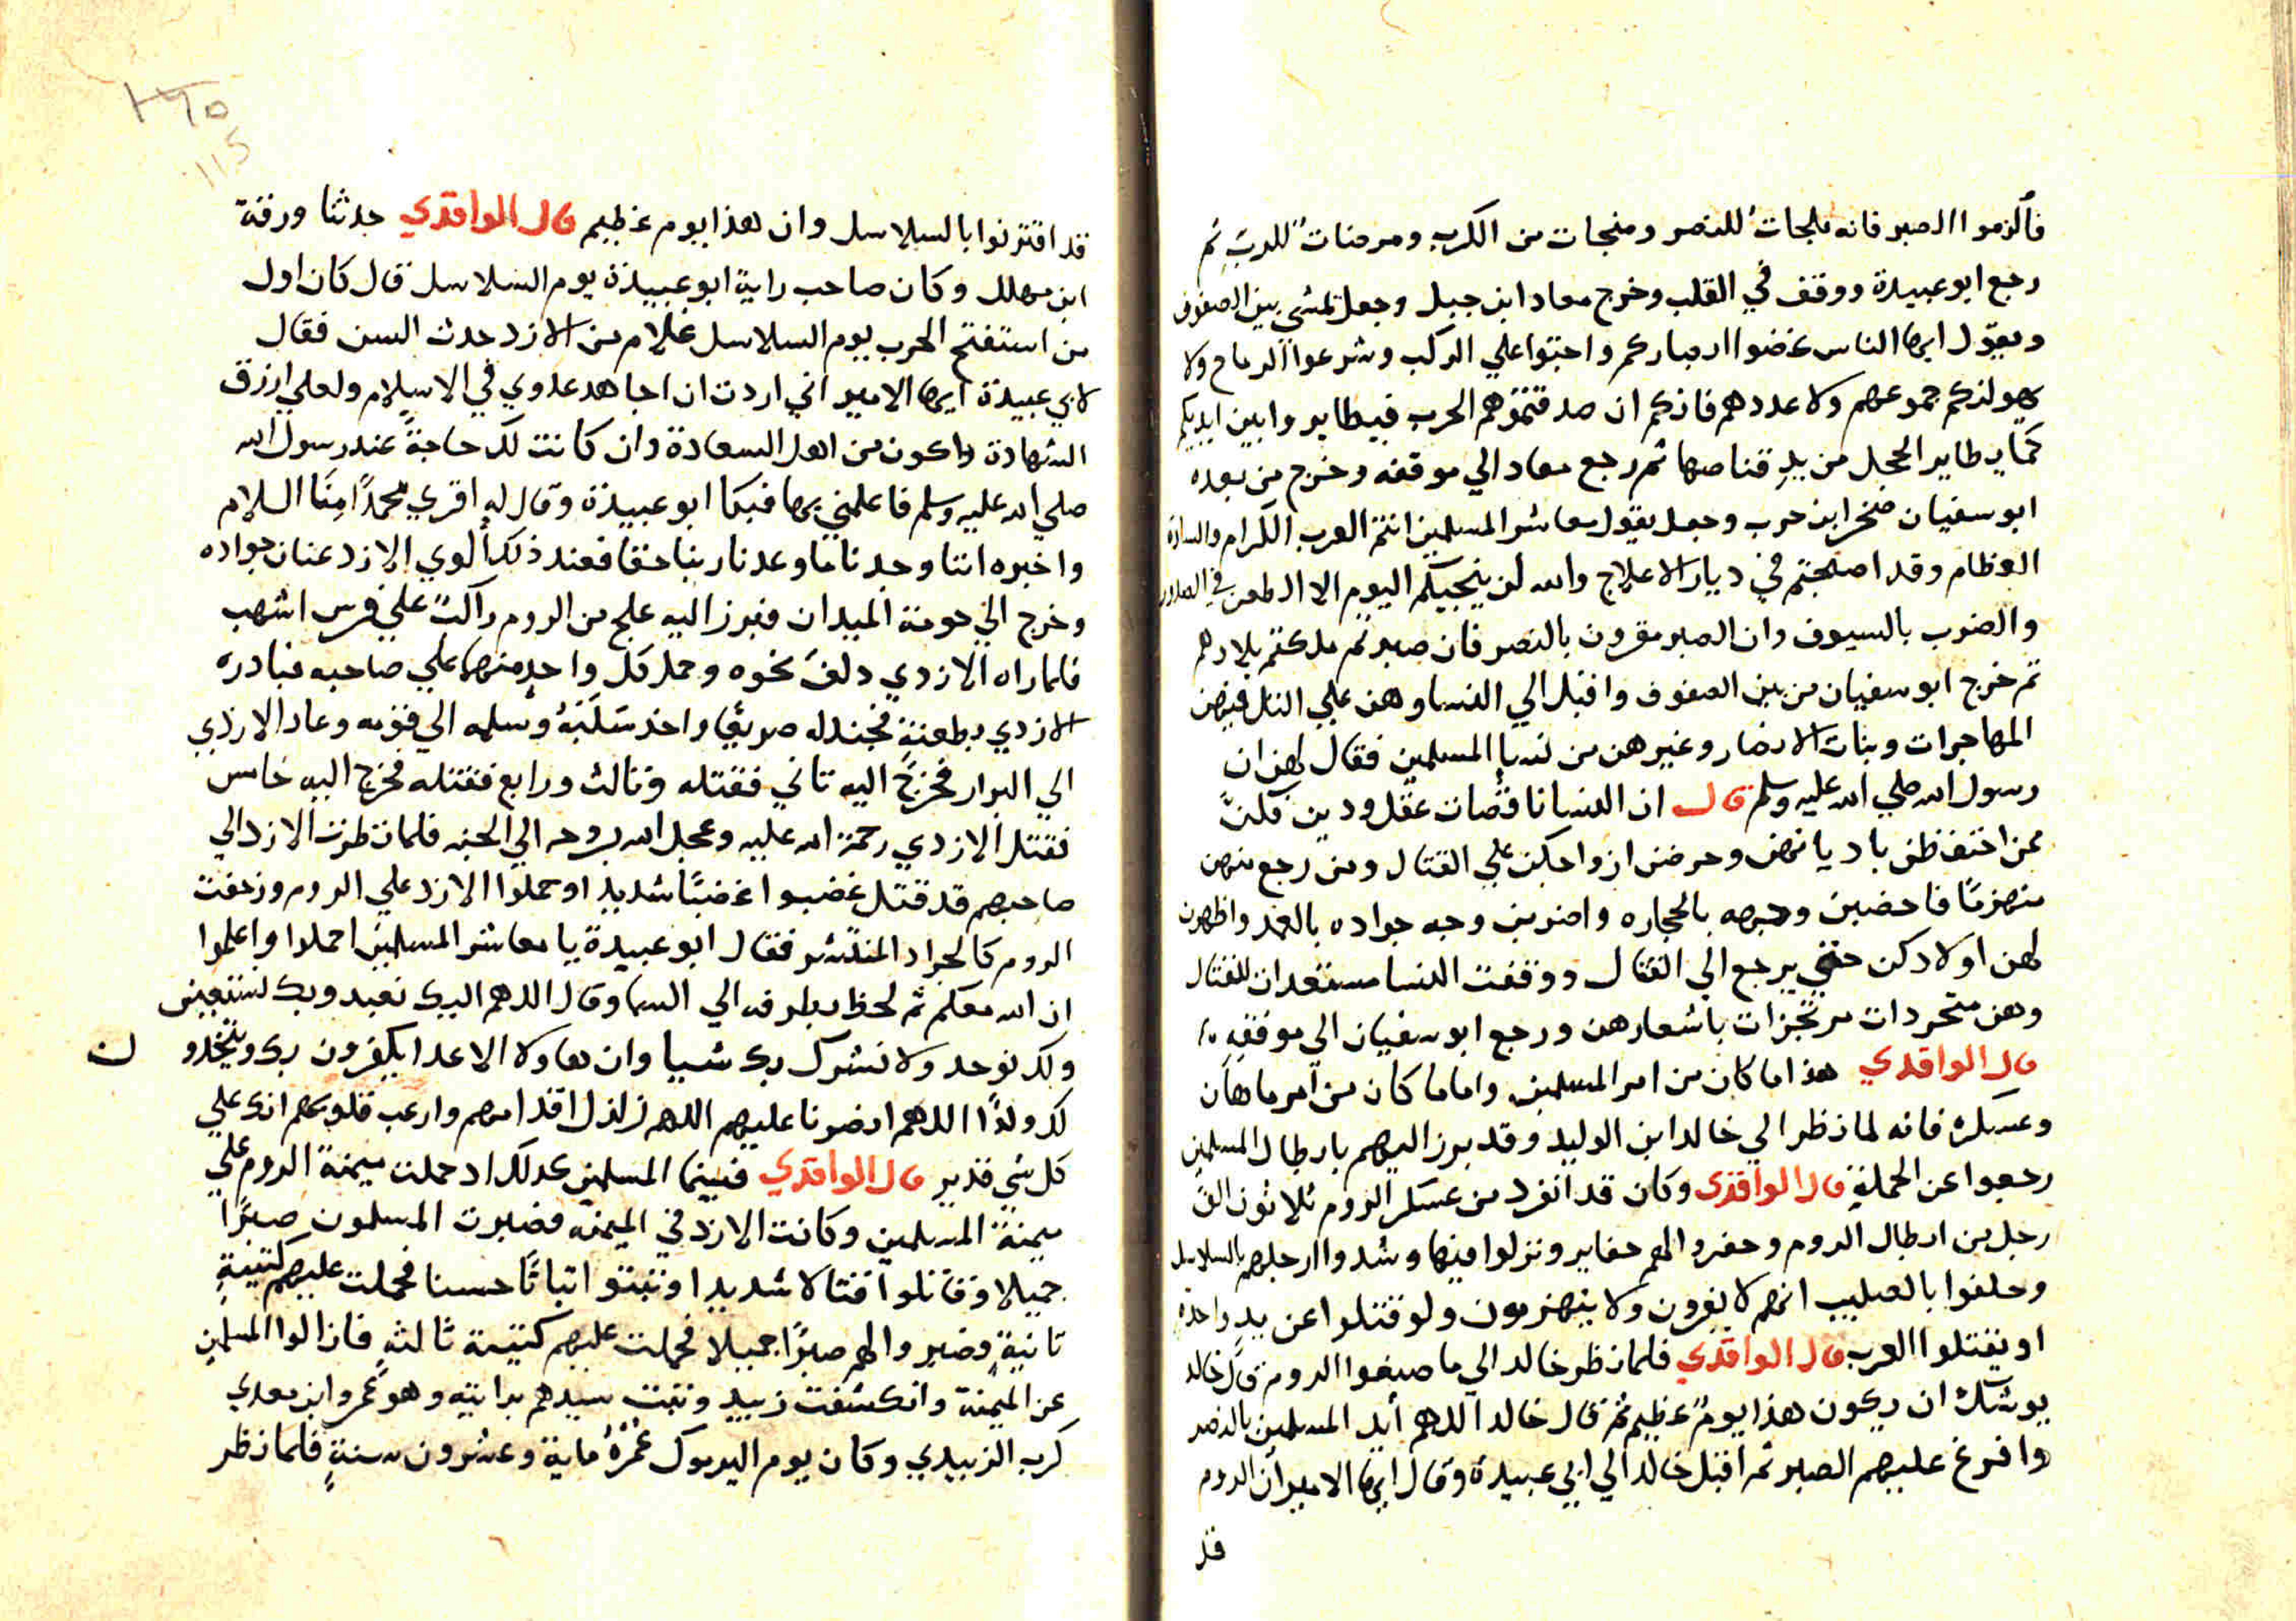 فالزموا الصبر فانه ملجات للنصر ومنجات من الكرب ومرضات للرب ثم
رجع ابو عبيدة ووقف في القلب وخرج معاد ابن جبل وجعل يمشي بين الصفوف
ويقول ايها الناس غضوا ابصاركم واجثوا علي الركب وشرعوا الرماح ولا
يهولنكم جموعهم ولا عددهم فانكم ان صدقتموهم الحرب فيطايروا بين ايديكم
كما يطاير الحجل من يد قناصها ثم رجع معاد الي موقفه وخرج من بعده
ابو سفيان صخر ابن حرب وجعل يقول معاشر المسلمين انتم العرب الكرام والسادة
العظام وقد اصبحتم في ديار الاعلاج والله لن ينجيكم اليوم الا الطعن في الصدور
والضرب بالسيوف وان الصبر مقرون بالنصر فان صبرتم ملكتم بلادهم
ثم خرج ابو سفيان من بين الصفوف واقبل الي النسا وهن علي التل فيهن
المهاجرات وبنات الانصار وغيرهن من نسا المسلمين فقال لهن ان
رسول الله صلي الله عليه وسلم قال ان النسا ناقصات عقل ودين فكن
ممن احتفظن باديانهن وحرضن ازواجكن علي القتال ومن رجع منهن
منهزمًا فاحصبن وجهه بالحجاره واضربن وجه جواده بالعمد واظهرن
لهن اولادكن حتي يرجع الي القتال ووقفت النسا مستعدات للقتال
وهن متجردات مرتجزات باشعارهن ورجع ابو سفيان الي موقفه
قال الواقدي هذا ما كان من امر المسلمين واما ما كان من امر ماهان
وعسكره فانه لما نظر الي خالد ابن الوليد وقد برز اليهم بابطال المسلمين
رجعوا عن الحملة قال الواقدي وكان قد انفرد من عسكر الروم ثلاثون الف
رجل من ابطال الروم وحفروا لهم حفاير ونزلوا فيها وشدوا ارجلهم بالسلاسل
وحلفوا بالصليب انهم لا يفرون ولا ينهزمون ولو قتلوا عن يد واحدة
او يقتلوا العرب قال الواقدي فلما نظر خالد الي ما صنعوا الروم قال خالد
يوشك ان يكون هذا يوم عظيم ثم قال خالد اللهم أيد المسلمين بالنصر
وافرغ عليهم الصبر ثم اقبل خالد الي ابي عبيدة وقال ايها الامير ان الروم
قد
قد اقترنوا بالسلاسل وان هذا يوم عظيم قال الواقدي حدثنا ورقة
ابن مهلل وكان صاحب راية ابو عبيدة يوم السلاسل قال كان اول
من استفتح الحرب يوم السلاسل غلام من الازد حدث السن فقال
لابي عبيدة ايها الامير اني اردت ان اجاهد عدوي في الاسلام ولعلي ارزق
الشهادة واكون من اهل السعادة وان كانت لك حاجةً عند رسول الله
صلي الله عليه وسلم فاعلمني بها فبكا ابو عبيدة وقال له اقري محمدًا مِنّا السلام
واخبره اننا وجدنا ما وعدنا ربنا حقا فعند ذلك ألوي الازد عنان جواده
وخرج الي حومة الميدان فبرز اليه علج من الروم راكبً علي فرس اشهب
فلما راه الازدي دلف نحوه وحمل كل واحد منهما علي صاحبه فبادره
الازدي بطعنة فجندله صريعًا واخذ سَلَبَهُ وسلمه الي قومه وعاد الازدي
الي البراز فخرج اليه تاني فقتله وثالث ورابع فقتله فخرج اليه خامس
فقتل الازدي رحمة الله عليه وعجل الله بروحه الي الجنه فلما نظرت الازد الي
صاحبهم قد قتل غضبوا غضبًا شديدا وحملوا الازد علي الروم وزحفت
الروم كالجراد المنتشر فقال ابو عبيدة يا معاشر المسلمين احملوا واعلموا
ان الله معكم ثم لحظ بطرفه الي السما وقال اللهم اليك نعبد وبك نستعين
ولك نوحد ولا نشرك بك شيا وان هاولا الاعدا يكفرون بك ويتخدو ن
لك ولدًا اللهم انصرنا عليهم اللهم زلزل اقدامهم وارعب قلوبهم انك علي
كل شي قدير قال الواقدي فبينما المسلمين كدلك اد حملت ميمنة الروم علي
ميمنة المسلمين وكانت الازد في الميمنه فصبرت المسلمون صبرًا
جميلا وقاتلوا قتالا شديدا وثبتو اثباتًا حسنا فحملت عليهم كتيبةٍ
تانيةٍ وصبروا لهم صبرًا جميلا فحملت عليهم كتيبة ثالثه فازالوا المسلمين
عن الميمنة وانكشفت زبيد وثبت سيدهم برايته وهو عمرو ابن معدي
كرب الزبيدي وكان يوم اليرموك عُمْرُهُ ماية وعشرون سنةٍ فلما نظر